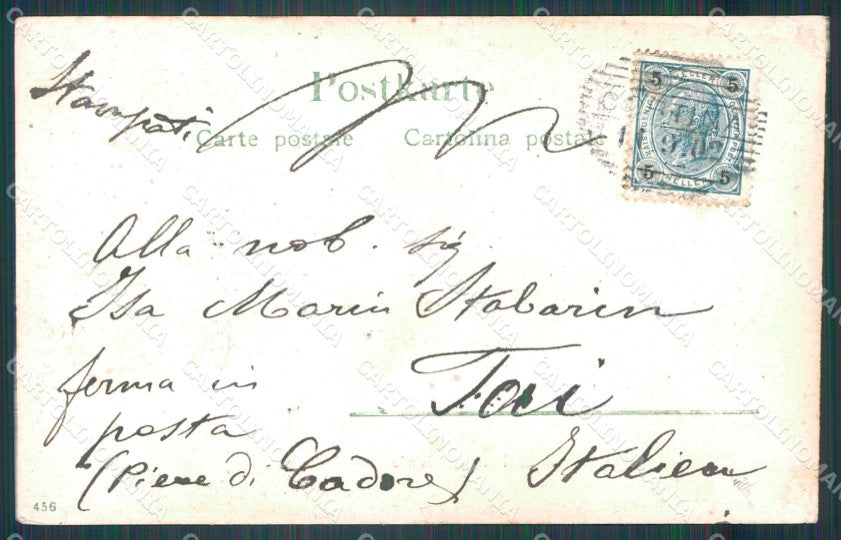 Postkarte
Stampati
Carte postale Cartolina postale
5 HELLER 5
5 HELLER 5
9/02
Alla nob. sig
Isa Marin
ferma in Tai
posta
(Pieve di Cadore) Italien
456